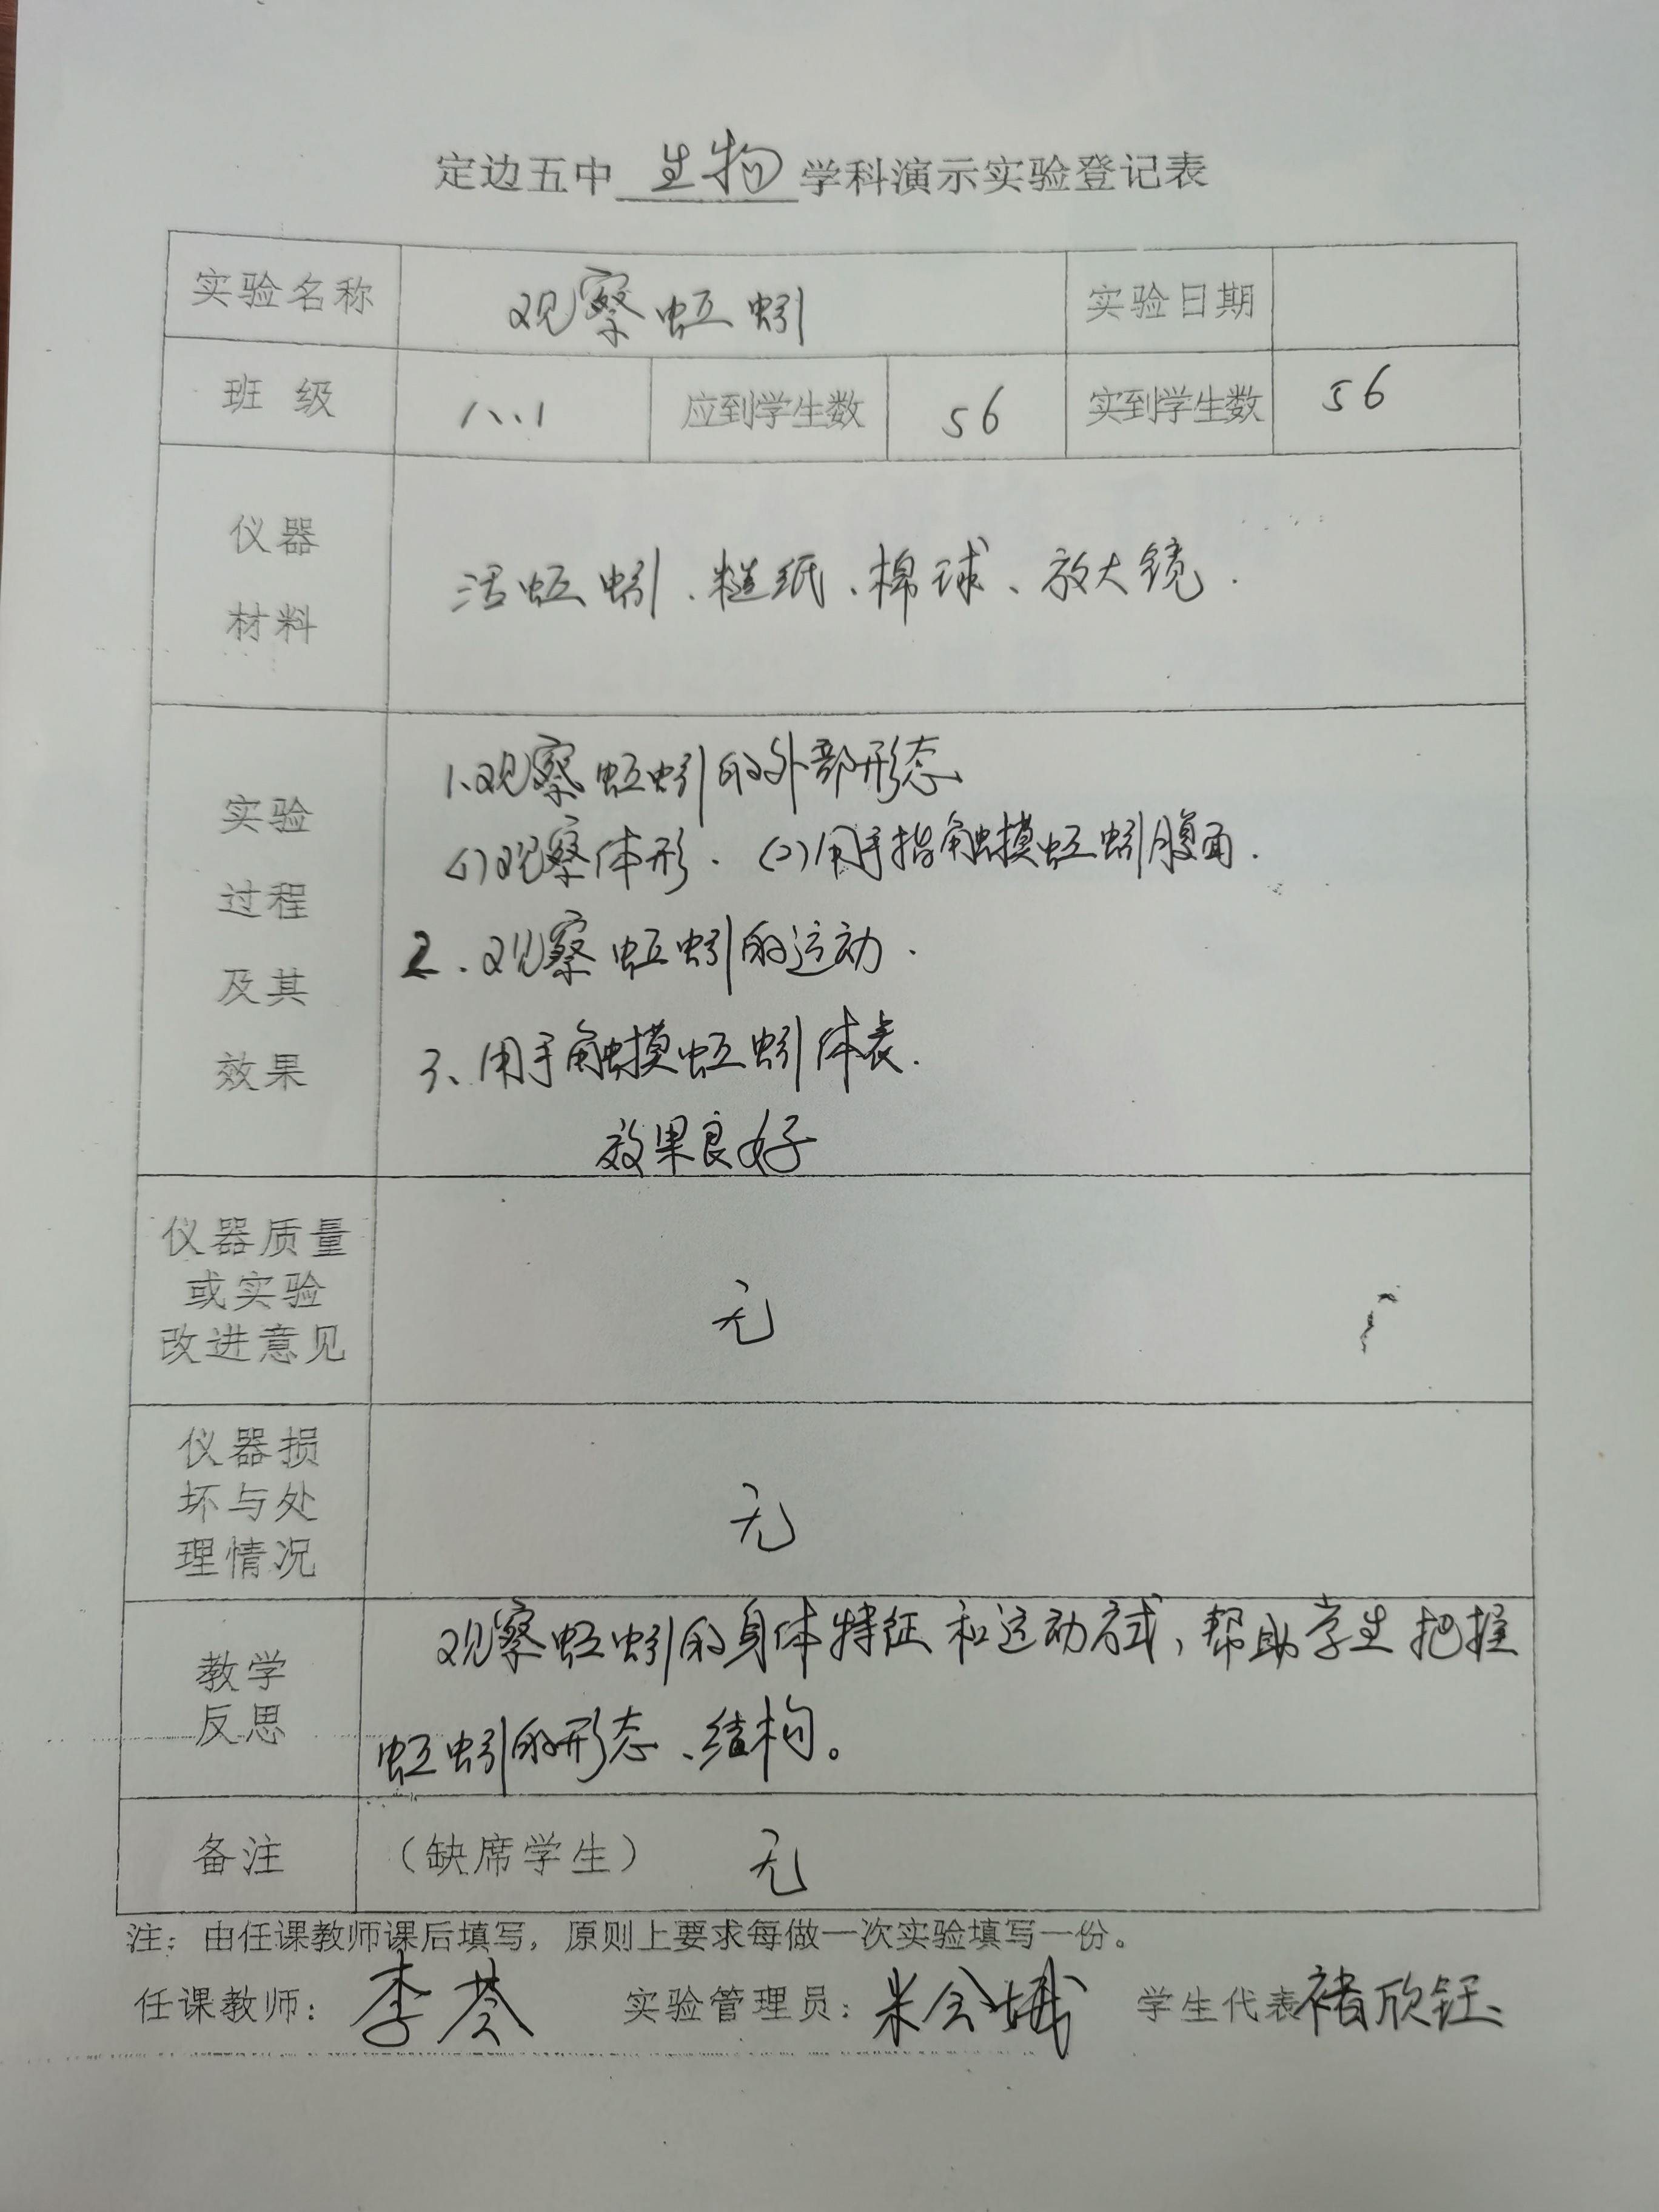 定边五中 生物 学科演示实验登记表
实验名称 观察蚯蚓 实验日期
班 级 八.1 应到学生数 56 实到学生数 56
仪器
材料
活蚯蚓、糙纸、棉球、放大镜.
实验
过程
及其
效果
1、观察蚯蚓的外部形态
(1)观察体形. (2)用手指触摸蚯蚓腹面.
2、观察蚯蚓的运动.
3、用手触摸蚯蚓体表.
效果良好
仪器质量
或实验
改进意见
无
仪器损
坏与处
理情况
无
教学
反思
观察蚯蚓的身体特征和运动方式,帮助学生把握
蚯蚓的形态、结构。
备注 （缺席学生） 无
注：由任课教师课后填写，原则上要求每做一次实验填写一份。
任课教师：李荟 实验管理员：米会娥 学生代表褚欣钰